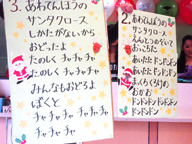 3. あわてんぼうの
サンタクロース
しかたがないから
おどったよ
たのしく チャチャチャ
たのしく チャチャチャ
みんなもおどろよ
ぼくと
チャチャチャ
チャチャチャ
2. あわてんぼうの
サンタクロース
えんとつのぞいて
おっこちた
あいたた ドンドンドン
あいたた ドンドンドン
まっくろくろけの
おかお
ドンドンドン
ドンドンドン